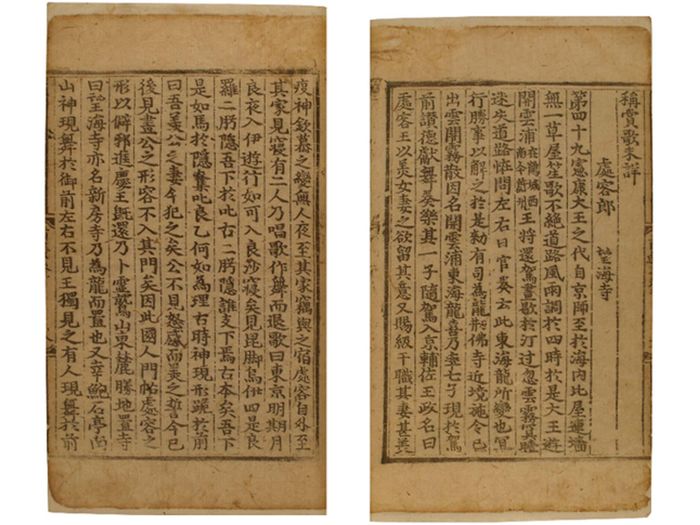 稱賞歌未詳
處容郎 望海寺
第四十九憲康大王之代自京師至於海內比屋連墻
無一草屋笙歌不絶道路風雨調於四時於是大王遊
開雲浦在鶴城西南今蔚州王將還駕晝歇於汀过忽雲霧冥曀
迷失道路怪問左右日官奏云此東海龍所變也冝
行勝事以解之於是勑有司為龍刱佛寺近境施令已
出雲開霧散因名開雲浦東海龍喜乃率七子現於駕
前讃德獻舞奏樂其一子隨駕入京輔佐王政名曰
處容王以羙女妻之欲留其意又賜級干職其妻甚羙
疫神欽慕之變無人夜至其家竊與之宿處容自外至
其家見寢有二人乃唱歌作舞而退歌曰東京明期月
良夜入伊遊行如可入良沙寢矣見昆脚烏伊四是良
羅二肹隱吾下於叱古二肹隱誰支下焉古本矣吾下
是如馬於隱奪叱良乙何如為理古時神現形跪於前
曰吾羨公之妻今犯之矣公不見怒感而羙之誓今已
後見畫公之形容不入其門矣因此國人門帖處容之
形以僻邪進慶王旣還乃卜靈鷲山東麓勝地置寺
曰望海寺亦名新房寺乃為龍而置也又幸鮑石亭南
山神現舞於御前左右不見王獨見之有人現舞於前